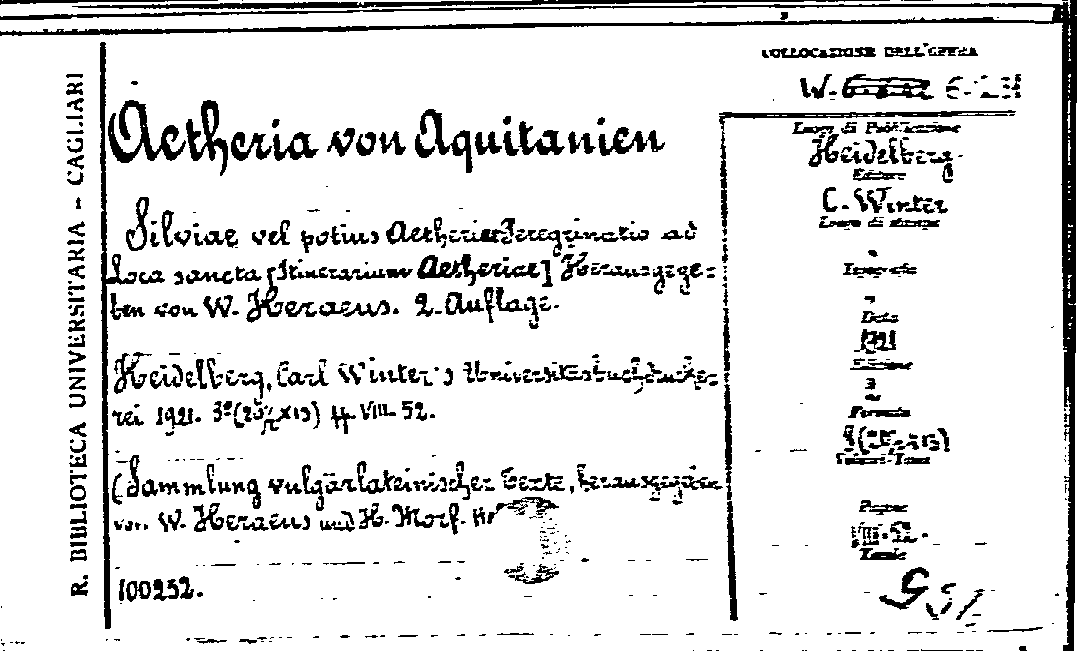 R. BIBLIOTECA UNIVERSITARIA - CAGLIARI
Aetheria von Aquitanien
Silviae vel potius Aetheriae Peregrinatio ad
Loca sancta [Itinerarium Aetheriae] Herausgege=
ben von W. Heraeus. 2. Auflage.
Heidelberg, Carl Winter's Universitätsbuchdrucke=
rei 1921. VIII. 52.
(Sammlung vulgärlateinischer Texte, herausgegeben
von W. Heraeus und H. Morf.
100252.
COLLOCAZIONE DELL'OPERA
W.
Luogo di Pubblicazione
Heidelberg.
Editore
C. Winter
Luogo di stampa
Tipografia
Data
1921
Edizione
Formato
Pagine
VIII-52.